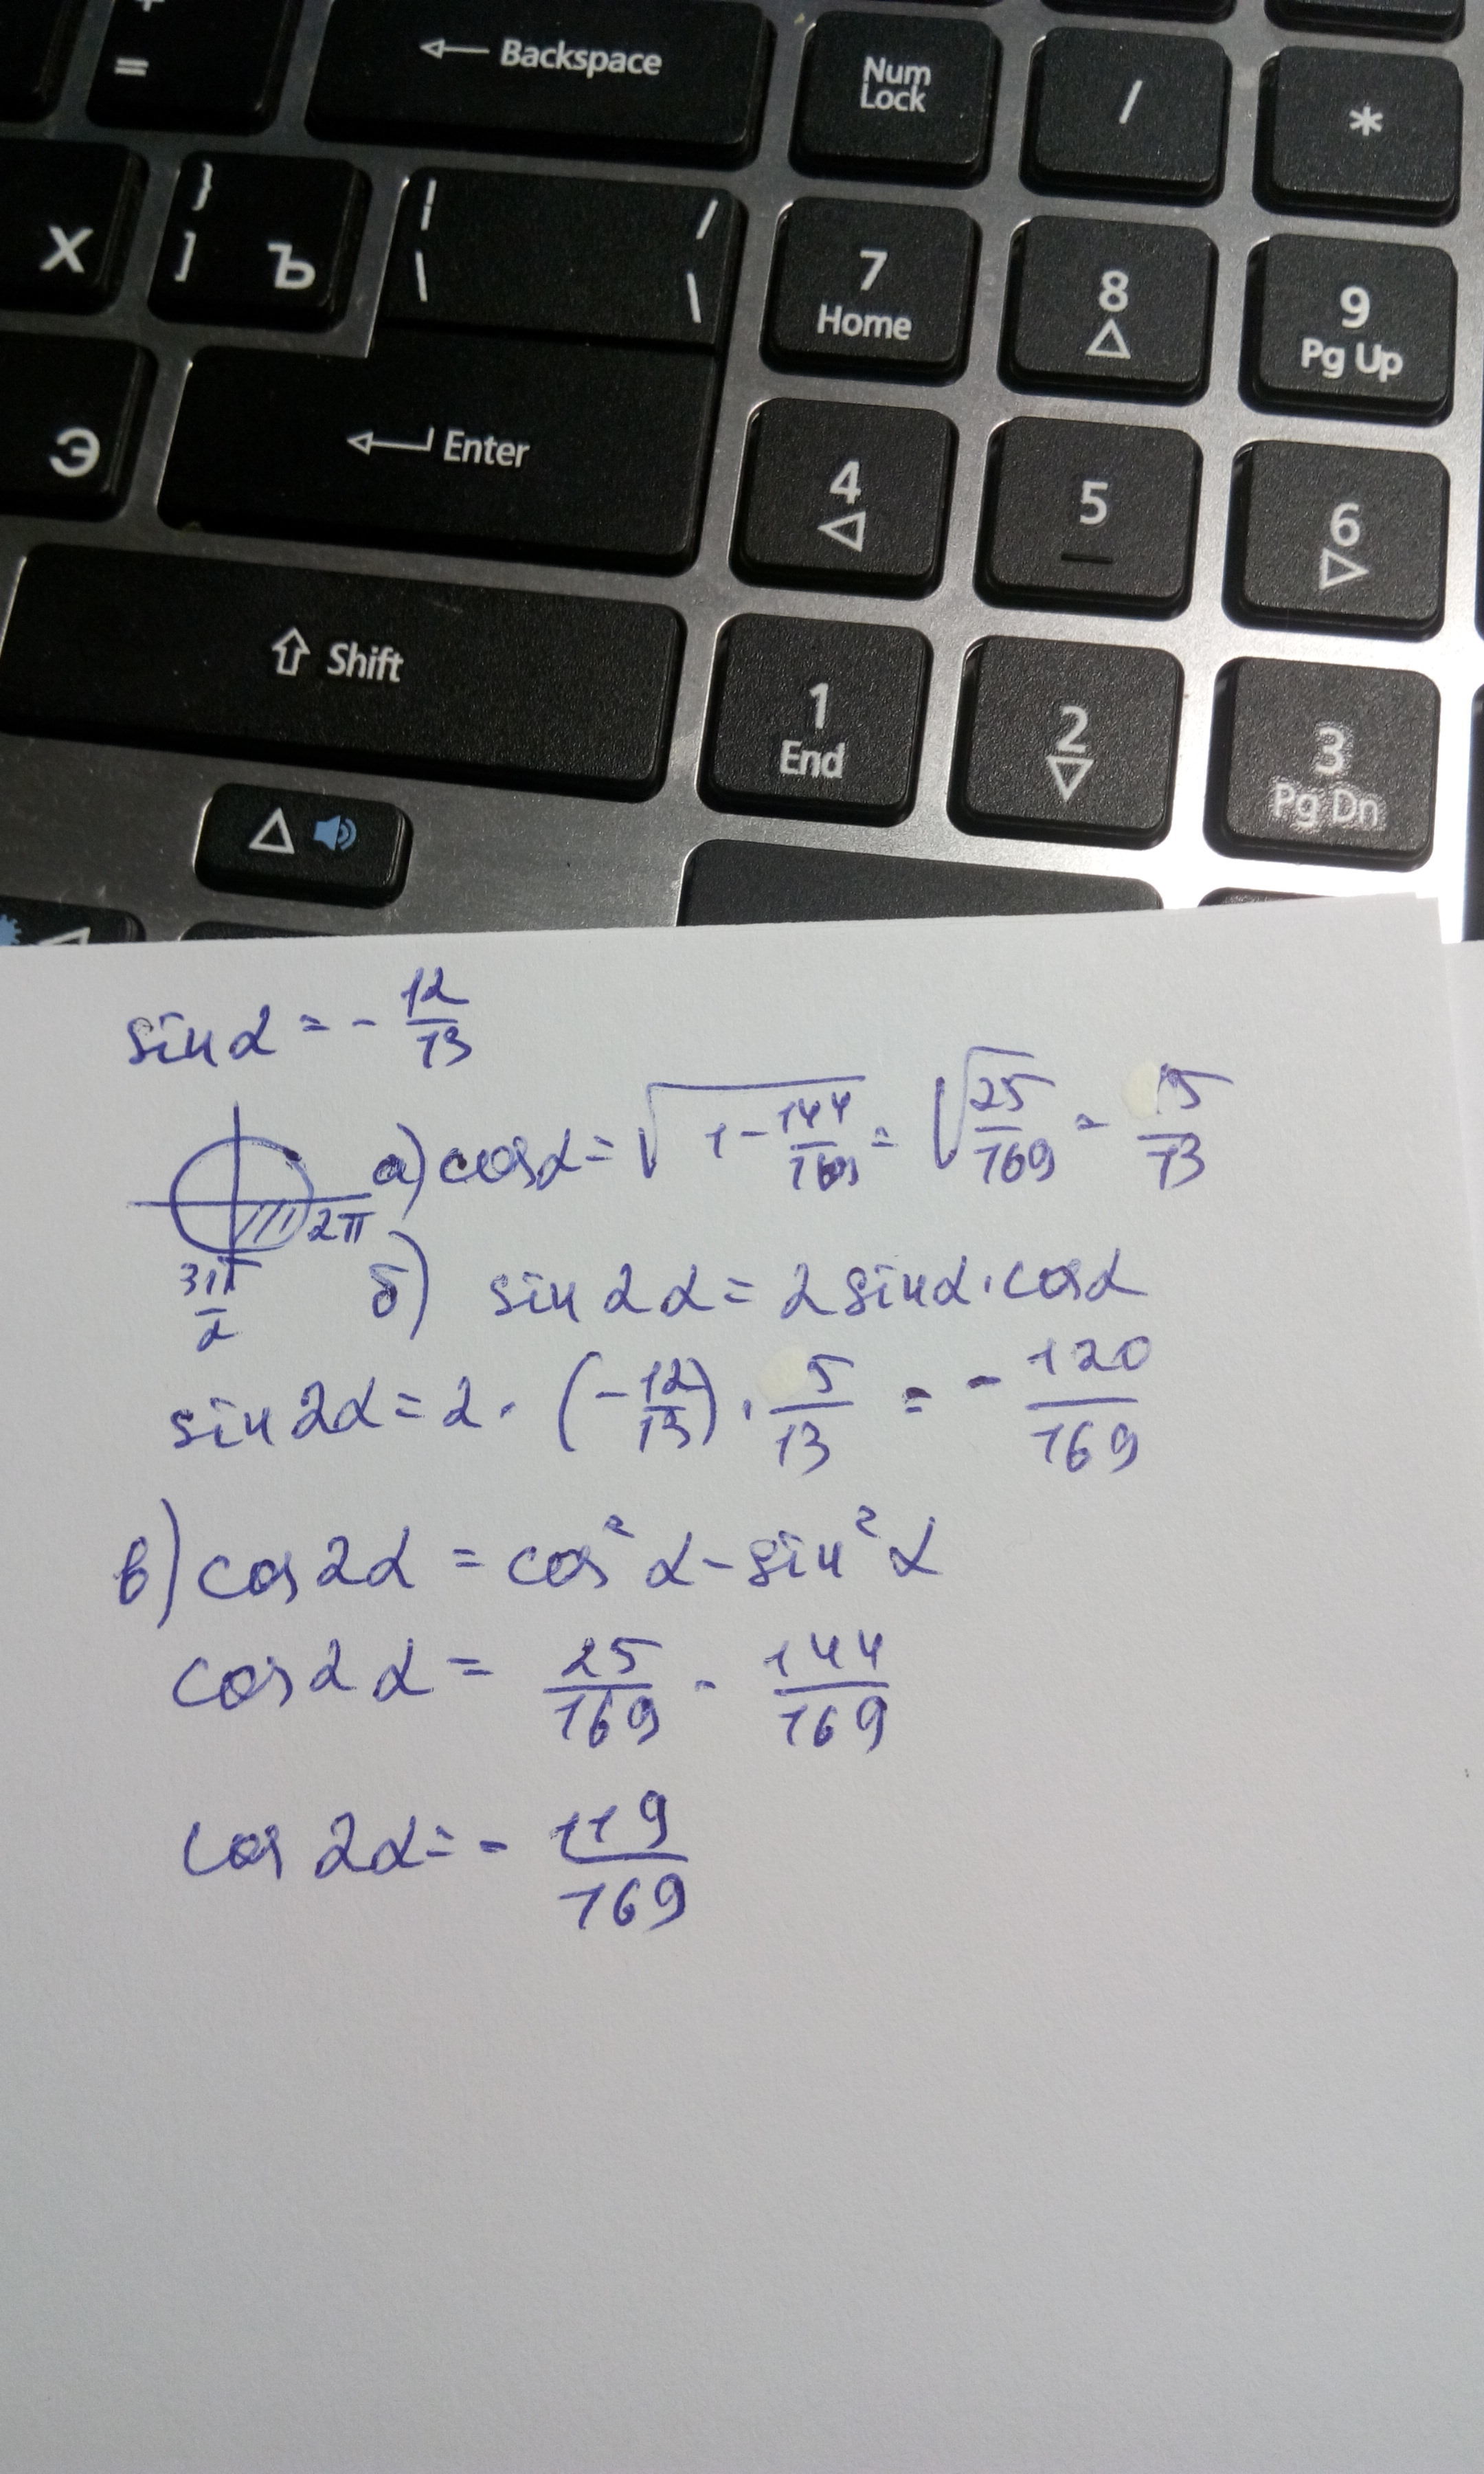 +
=
Backspace
Num
Lock
/
*
Х
}
] Ъ
| /
\ \
7
Home
8
9
Pg Up
Э
Enter
4
5
6
Shift
1
End
2
3
Pg Dn
sin α = - 12/13
а) cos α = √(1 - 144/169) = √(25/169) = 5/13
2π
3π/2
б) sin 2α = 2 sin α · cos α
sin 2α = 2 · (- 12/13) · 5/13 = - 120/169
в) cos 2α = cos² α - sin² α
cos 2α = 25/169 - 144/169
cos 2α = - 119/169